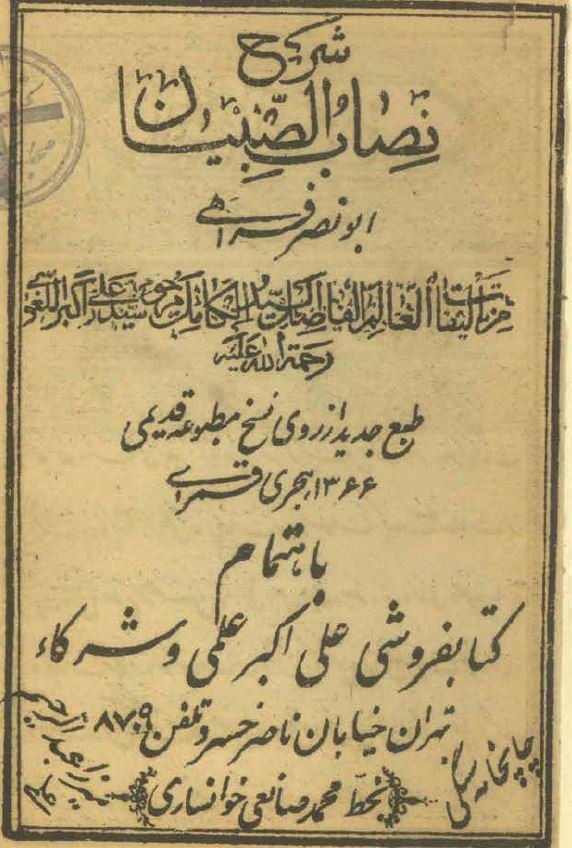 شرح
نصاب الصبیان
ابو نصر فراهی
من تالیفات العالم الفاضل السید الکامل مرحوم سید علی اکبر
رحمة الله علیه
طبع جدید از روی نسخ مطبوعه قدیمی
۱۳۶۶ هجری قمری
باهتمام
کتابفروشی علی اکبر علمی و شرکاء
تهران خیابان ناصر خسرو تلفن ۸۷۰۹
بخط محمد صانعی خوانساری